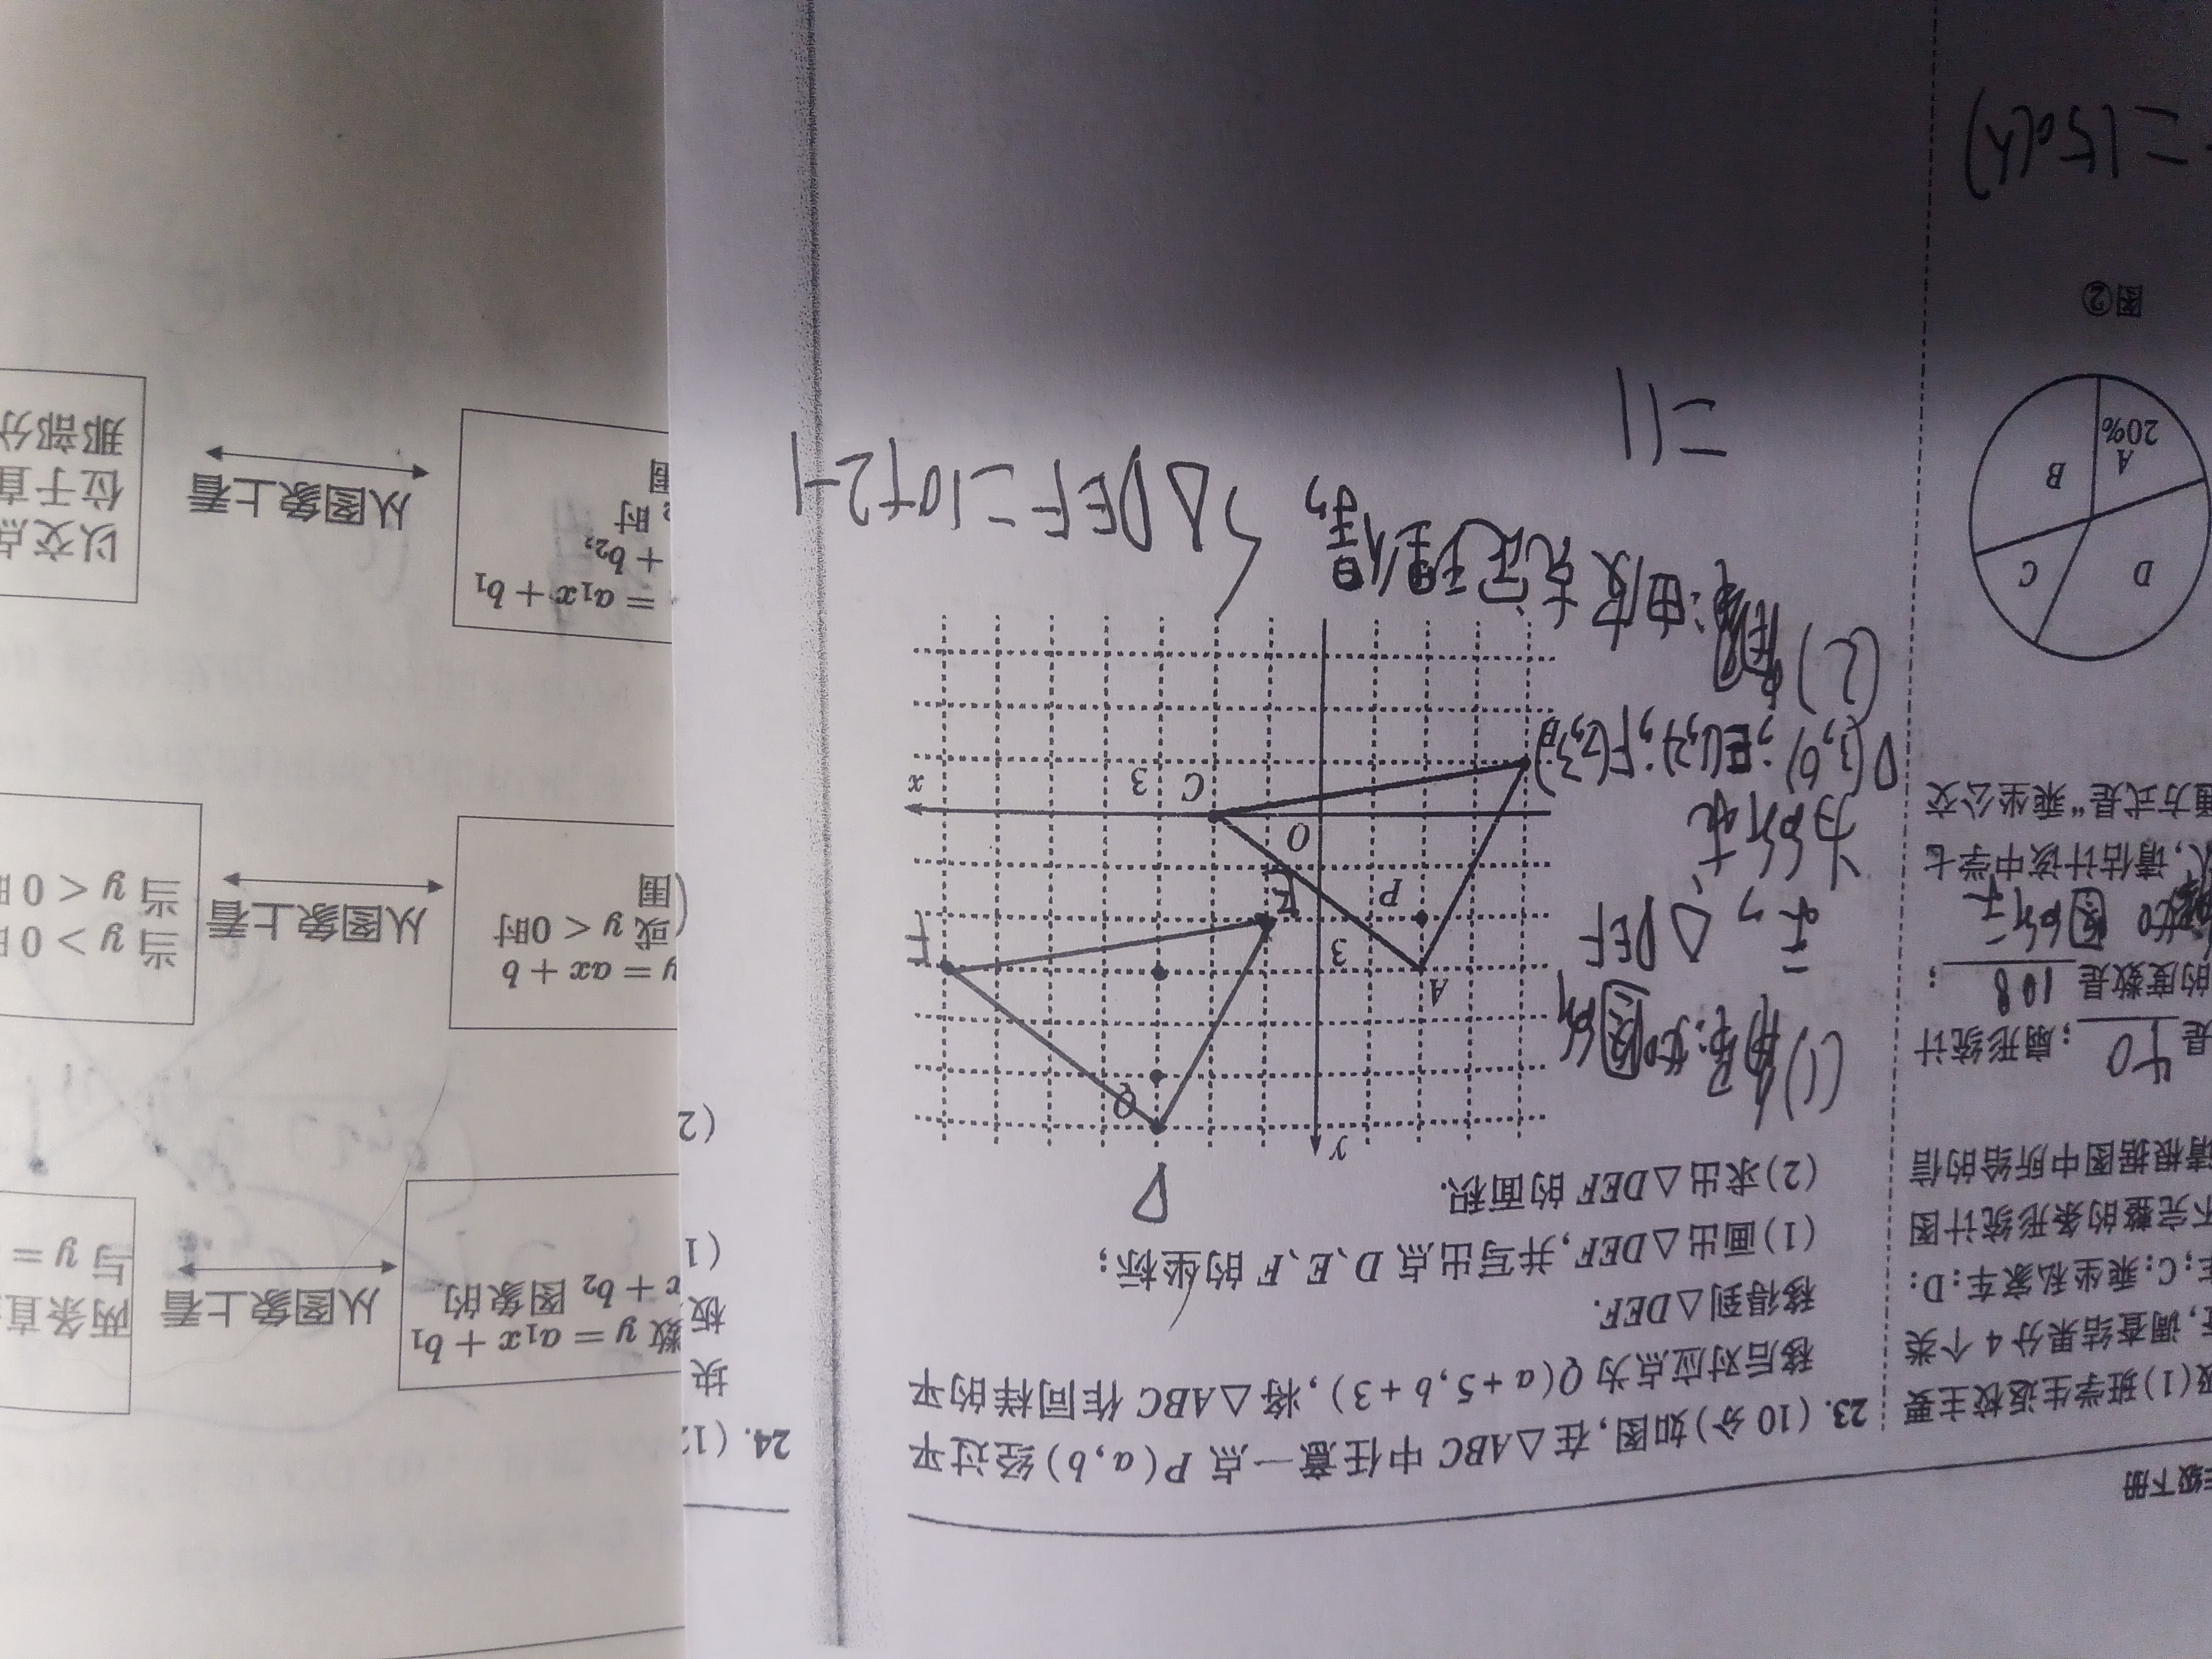 年级下册
级(1)班学生返校主要
,调查结果分4个类
;C:乘坐私家车;D:
不完整的条形统计图
请根据图中所给的信
是 40 ;扇形统计
的度数是 108 ;
图所示
,请估计该中学七
通方式是“乘坐公交
D
C
A
20%
B
图②
=150(人)
23. (10分)如图,在△ABC中任意一点P(a,b)经过平
移后对应点为Q(a+5,b+3),将△ABC作同样的平
移得到△DEF.
(1)画出△DEF,并写出点D、E、F的坐标;
(2)求出△DEF的面积.
D
y
Q
A
3
P
E
F
O
C
3
x
B
(1)解:如图所
示,△DEF
为所求
D(3,6);E(1,2);F(7,3)
(2)解:由皮克定理得,
S△DEF=10+2-1
=11
24. (12
块
板
(1
(2
数 y = a₁x + b₁
x + b₂ 图象的
从图象上看
两条直
与 y =
y = ax + b
或 y < 0时
围
从图象上看
当 y > 0时
当 y < 0时
= a₁x + b₁
+ b₂,
时
围
从图象上看
以交点
位于直
那部分